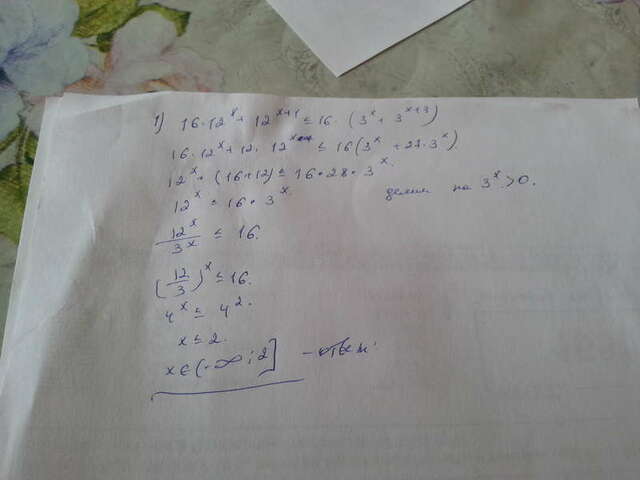 1) 16·12^x + 12^{x+1} ≤ 16·(3^x + 3^{x+3})
16·12^x + 12·12^x ≤ 16(3^x + 27·3^x)
12^x + (16+12) ≤ 16·28·3^x.
12^x ≤ 16·3^x. делим на 3^x>0.
12^x/3^x ≤ 16.
(12/3)^x ≤ 16.
4^x ≤ 4^2.
x ≤ 2.
x∈(-∞;2] – ответ.